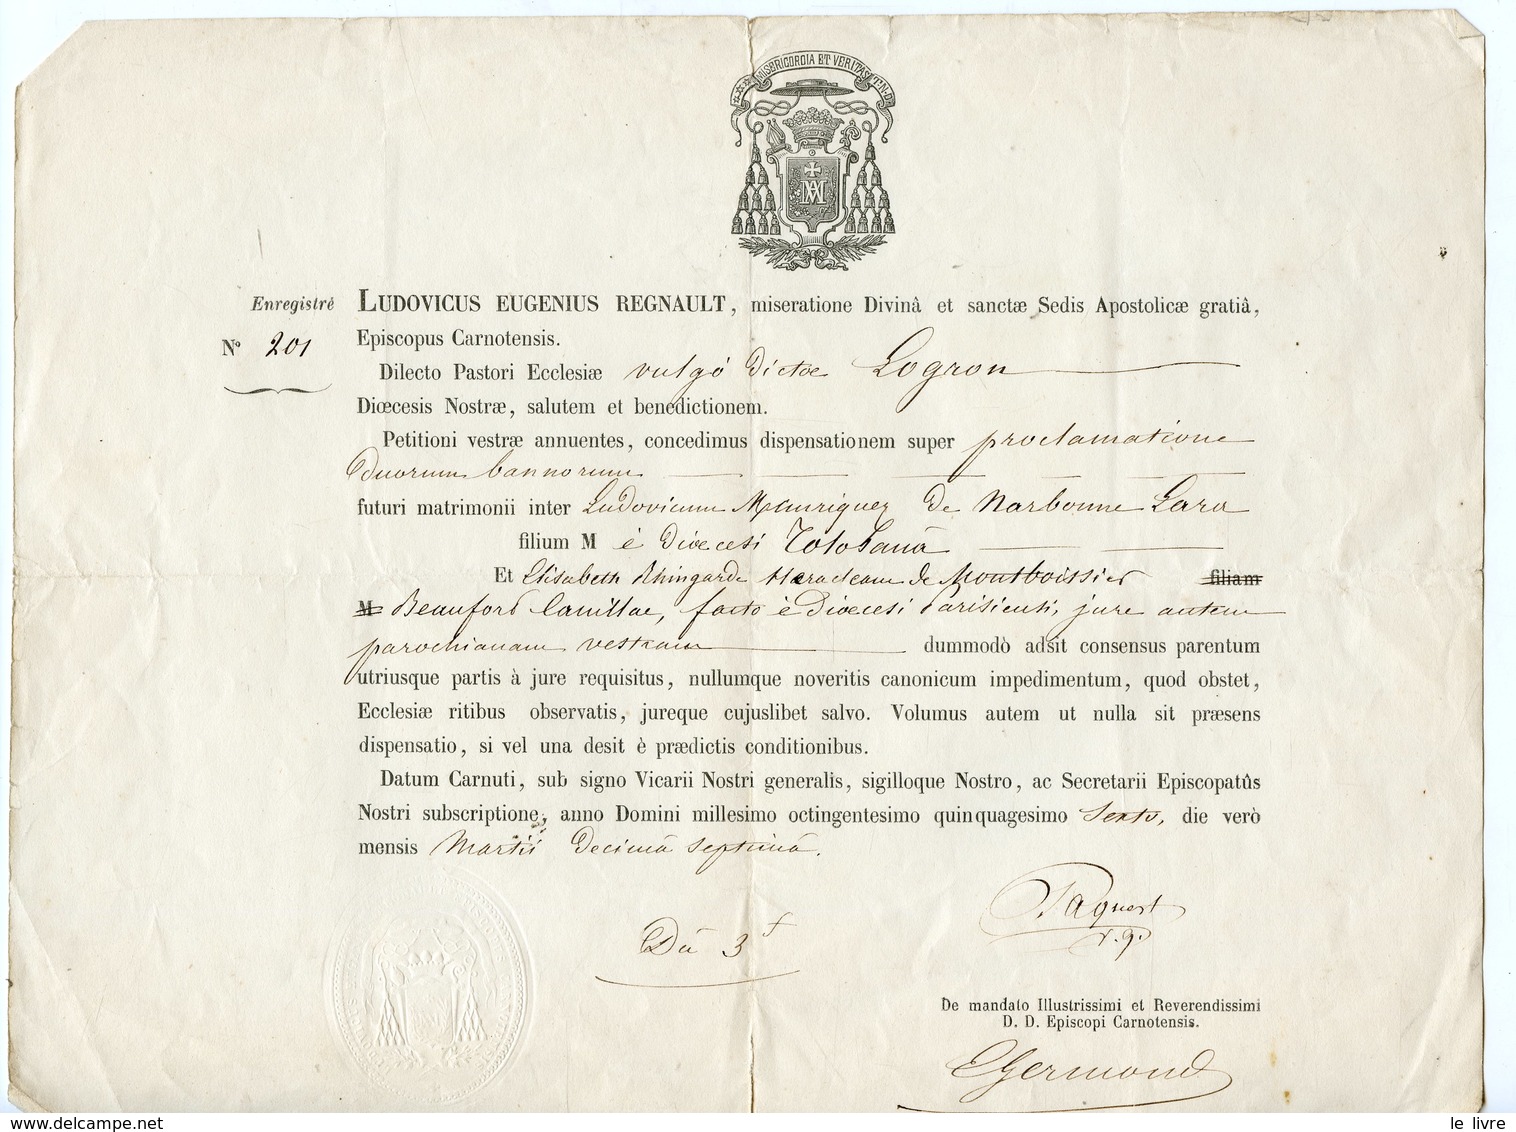 MISERICORDIA ET VERITAS T.N.D.
Enregistré
N° 201
LUDOVICUS EUGENIUS REGNAULT, miseratione Divinâ et sanctæ Sedis Apostolicæ gratiâ,
Episcopus Carnotensis.
Dilecto Pastori Ecclesiæ vulgò dictæ Logron
Diœcesis Nostræ, salutem et benedictionem.
Petitioni vestræ annuentes, concedimus dispensationem super proclamatione
duorum bannorum
futuri matrimonii inter Ludovicum Manriquez de Narbonne Lara
filium M è Diœcesi Tolosanâ
Et Elisabeth Rhingarde de Montboissier filiam
M Beaufort Canillac, facto è Diœcesi Parisiensi, jure autem
parochianam vestram dummodò adsit consensus parentum
utriusque partis à jure requisitus, nullumque noveritis canonicum impedimentum, quod obstet,
Ecclesiæ ritibus observatis, jureque cujuslibet salvo. Volumus autem ut nulla sit præsens
dispensatio, si vel una desit è prædictis conditionibus.
Datum Carnuti, sub signo Vicarii Nostri generalis, sigilloque Nostro, ac Secretarii Episcopatûs
Nostri subscriptione, anno Domini millesimo octingentesimo quinquagesimo sexto, die verò
mensis Martii decimâ septimâ.
Paquert
v. g.
Dû 3 f
De mandato Illustrissimi et Reverendissimi
D. D. Episcopi Carnotensis.
EGermond
le livre